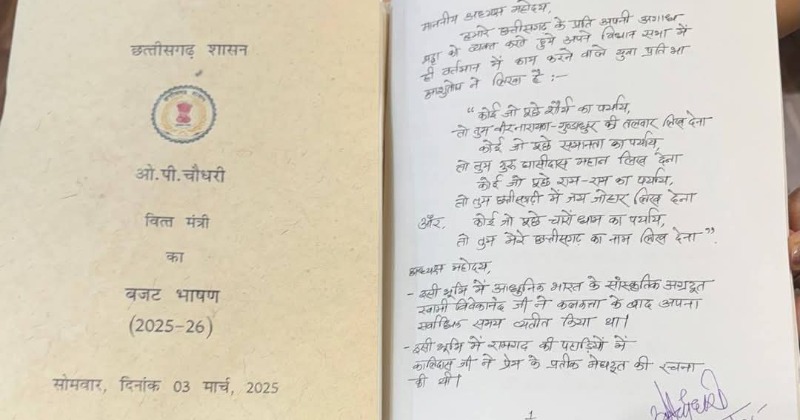 छत्तीसगढ़ शासन
ओ.पी.चौधरी
वित्त मंत्री
का
बजट भाषण
(2025-26)
सोमवार, दिनांक 03 मार्च, 2025
माननीय अध्यक्ष महोदय,
हमारे छत्तीसगढ़ के प्रति अपनी अगाध
श्रद्धा को व्यक्त करते हुये अपने विधान सभा में
ही वर्तमान में काम करने वाले युवा प्रतिभा
ने लिखा है :-
“कोई जो पूछे शौर्य का पर्याय,
तो तुम वीरनारायण-गुण्डाधुर की तलवार लिख देना
कोई जो पूछे समानता का पर्याय,
तो तुम गुरु घासीदास महान लिख देना
कोई जो पूछे राम-राम का पर्याय,
तो तुम छत्तीसगढ़ी में जय जोहार लिख देना
और, कोई जो पूछे चारों धाम का पर्याय,
तो तुम मेरे छत्तीसगढ़ का नाम लिख देना”.
अध्यक्ष महोदय,
- इसी भूमि में आधुनिक भारत के सांस्कृतिक अग्रदूत
स्वामी विवेकानंद जी ने कलकत्ता के बाद अपना
सर्वाधिक समय व्यतीत किया था।
- इसी भूमि में रामगढ़ की पहाड़ियों में
कालिदास जी ने प्रेम के प्रतीक मेघदूत की रचना
की थी।
1